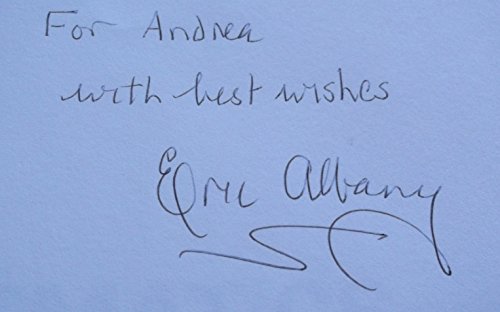 For Andrea
with best wishes
Eric Albany